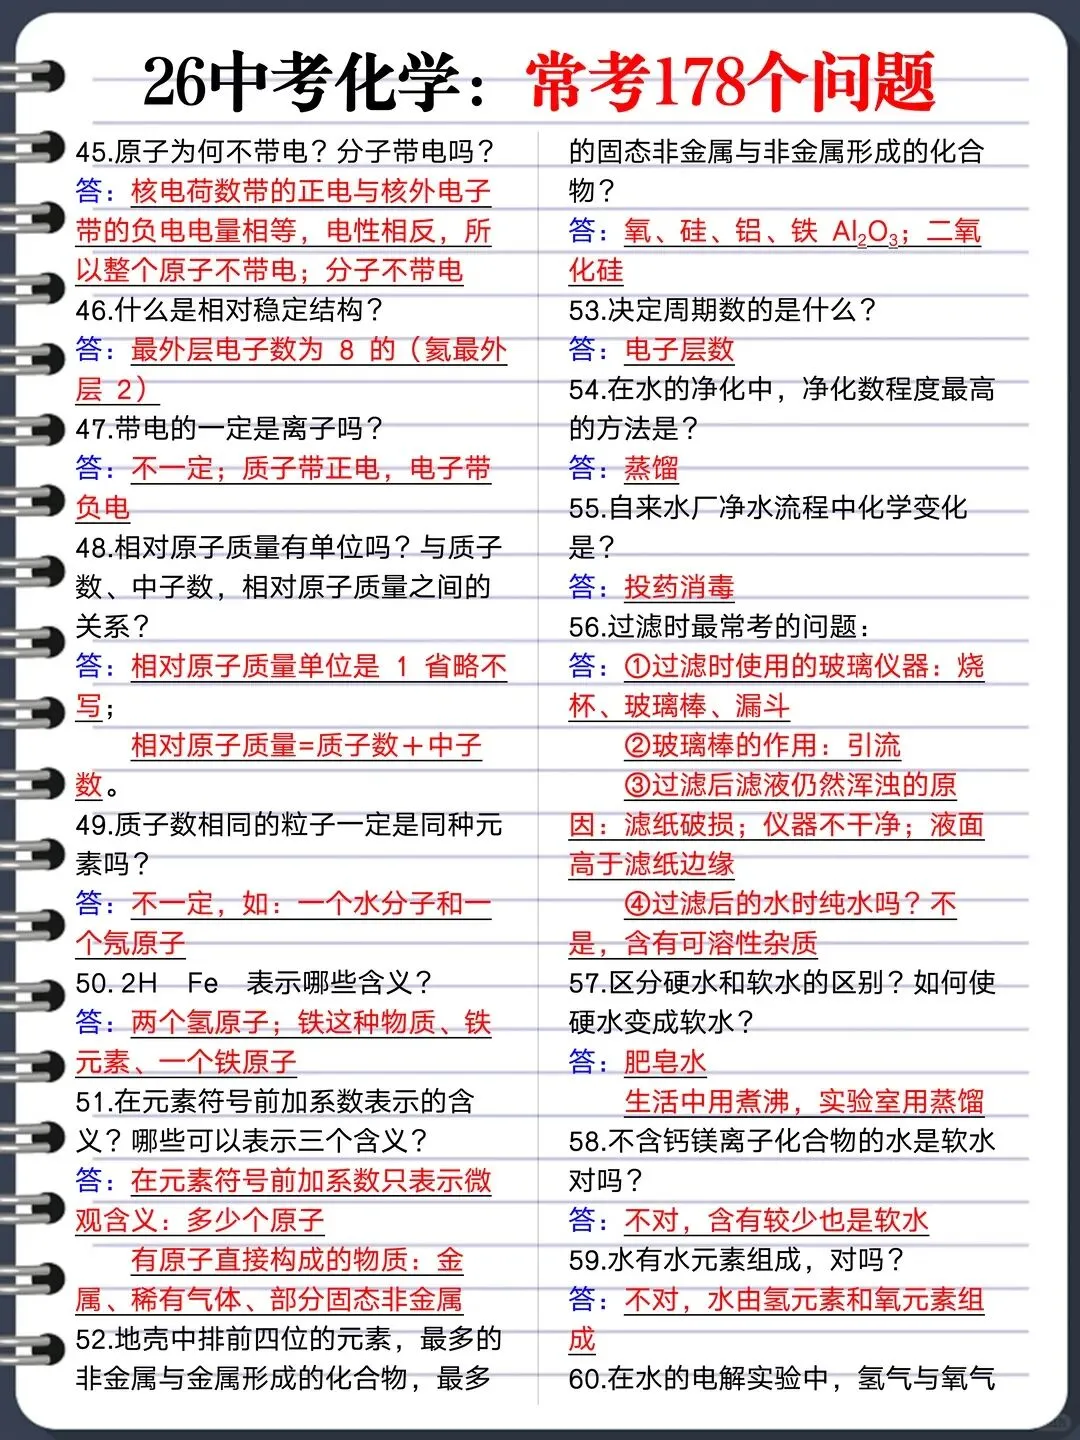 26中考化学：常考178个问题
45.原子为何不带电？分子带电吗？
答：核电荷数带的正电与核外电子
带的负电电量相等，电性相反，所
以整个原子不带电；分子不带电
46.什么是相对稳定结构？
答：最外层电子数为 8 的（氦最外
层 2）
47.带电的一定是离子吗？
答：不一定；质子带正电，电子带
负电
48.相对原子质量有单位吗？与质子
数、中子数，相对原子质量之间的
关系？
答：相对原子质量单位是 1 省略不
写；
相对原子质量=质子数＋中子
数。
49.质子数相同的粒子一定是同种元
素吗？
答：不一定，如：一个水分子和一
个氖原子
50.2H Fe 表示哪些含义？
答：两个氢原子；铁这种物质、铁
元素、一个铁原子
51.在元素符号前加系数表示的含
义？哪些可以表示三个含义？
答：在元素符号前加系数只表示微
观含义：多少个原子
有原子直接构成的物质：金
属、稀有气体、部分固态非金属
52.地壳中排前四位的元素，最多的
非金属与金属形成的化合物，最多
的固态非金属与非金属形成的化合
物？
答：氧、硅、铝、铁 Al₂O₃；二氧
化硅
53.决定周期数的是什么？
答：电子层数
54.在水的净化中，净化数程度最高
的方法是？
答：蒸馏
55.自来水厂净水流程中化学变化
是？
答：投药消毒
56.过滤时最常考的问题：
答：①过滤时使用的玻璃仪器：烧
杯、玻璃棒、漏斗
②玻璃棒的作用：引流
③过滤后滤液仍然浑浊的原
因：滤纸破损；仪器不干净；液面
高于滤纸边缘
④过滤后的水时纯水吗？不
是，含有可溶性杂质
57.区分硬水和软水的区别？如何使
硬水变成软水？
答：肥皂水
生活中用煮沸，实验室用蒸馏
58.不含钙镁离子化合物的水是软水
对吗？
答：不对，含有较少也是软水
59.水有水元素组成，对吗？
答：不对，水由氢元素和氧元素组
成
60.在水的电解实验中，氢气与氧气